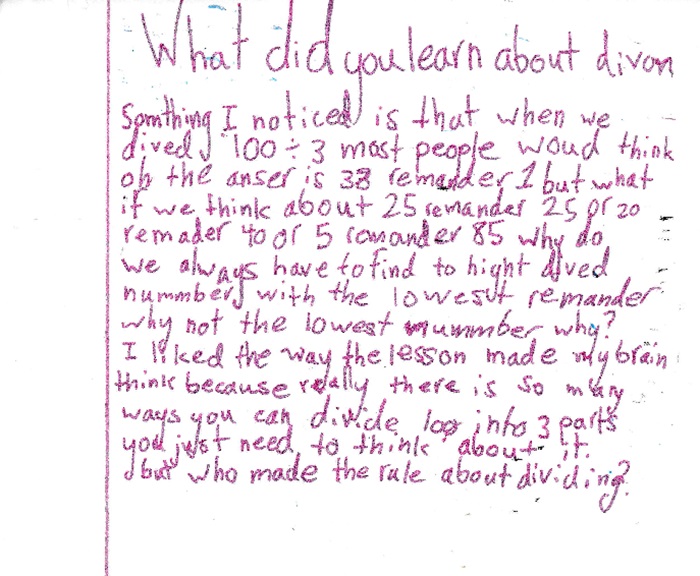 What did you learn about divon
Somthing I noticed is that when we
dived 100 ÷ 3 most people woud think
oh the anser is 33 remander 1 but what
if we think about 25 remander 25 or 20
remader 40 or 5 romander 85 why do
we always have to find to hight dived
nummbers with the lowest remander
why not the lowest mummber why?
I liked the way the lesson made my brain
think because really there is so many
ways you can divide 100 into 3 parts
you just need to think about it.
but who made the rule about dividing?